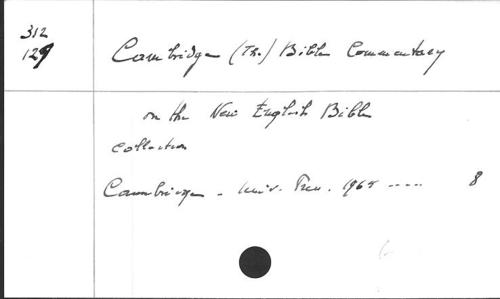 312
129
Cambridge (The) Bible Commentary
on the New English Bible
collection
Cambridge - Univ. Press. 1965 ---- 8